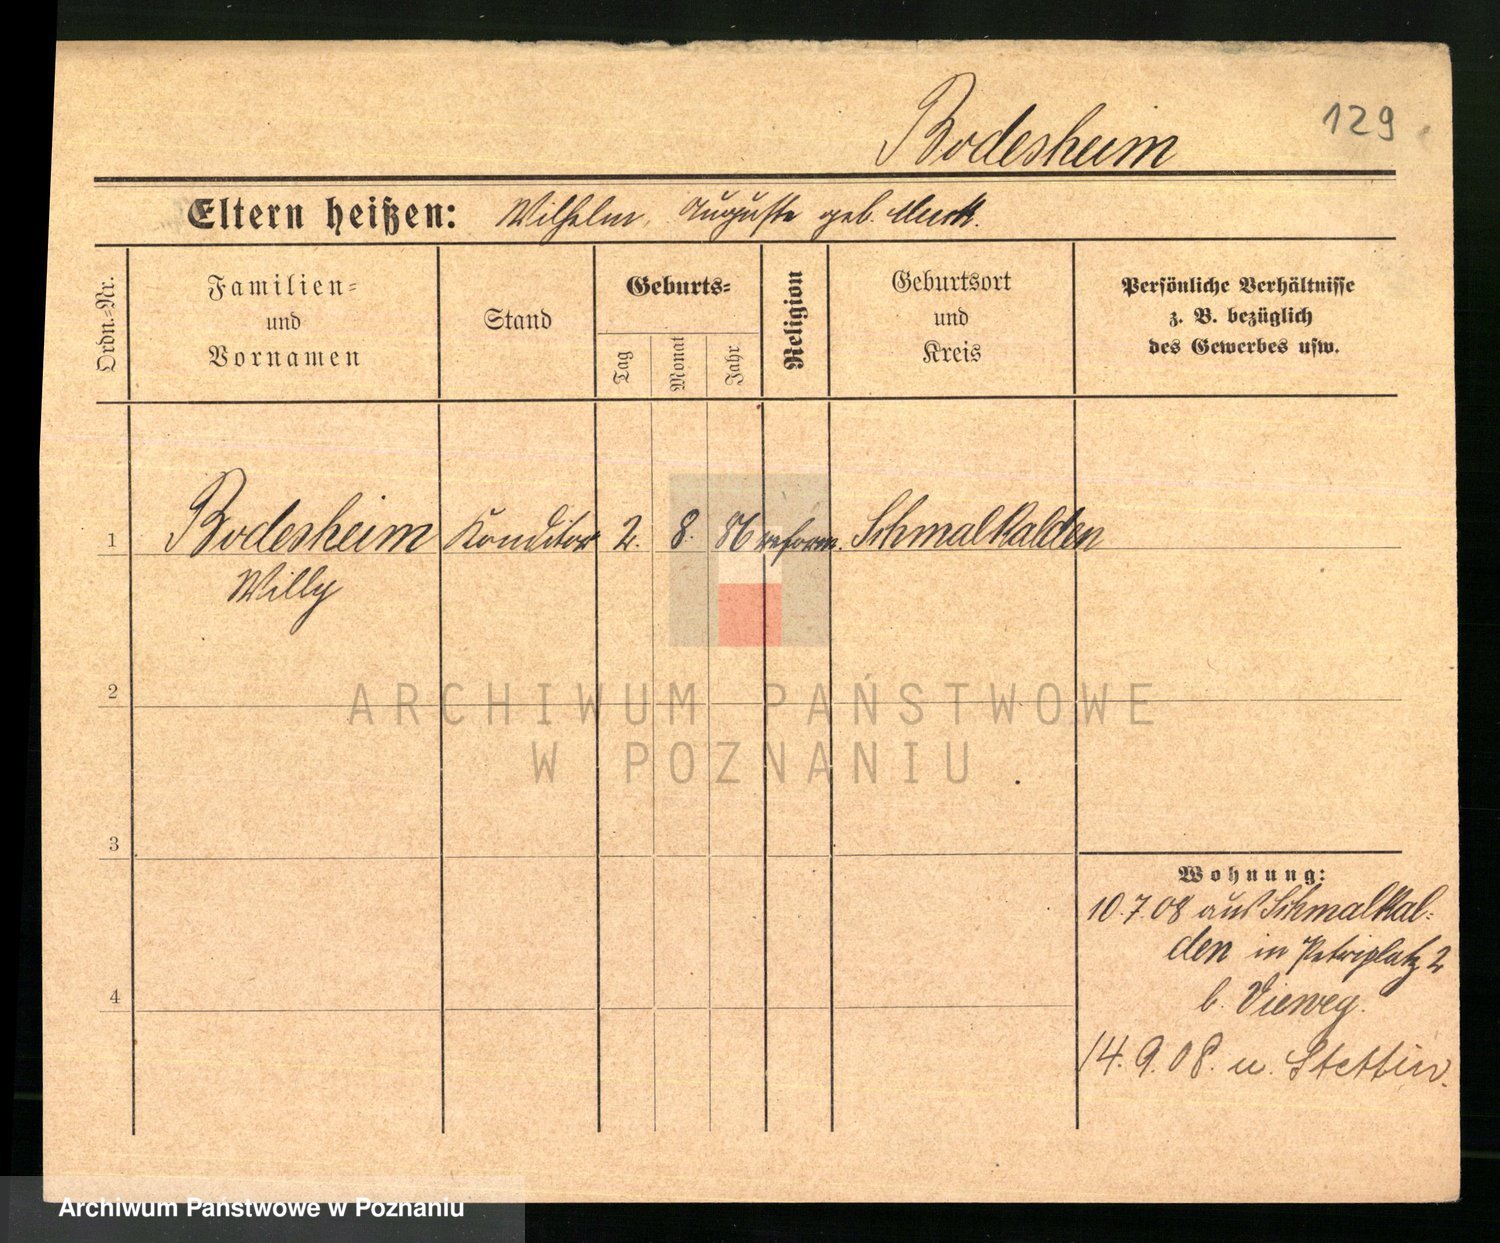 129
Bodesheim
Eltern heißen: Wilhelm, Auguste geb.
Ordn.=Nr.
Familien=
und
Vornamen
Stand
Geburts=
Tag
Monat
Jahr
Religion
Geburtsort
und
Kreis
Persönliche Verhältnisse
z. B. bezüglich
des Gewerbes usw.
1 Bodesheim Konditor 2. 8. 86 reform. Schmalkalden
Willy
2
ARCHIWUM PAŃSTWOWE
W POZNANIU
3
Wohnung:
10.7.08 aus Schmalkal=
den in Petriplatz 2
b. Vieweg.
4
14.9.08. n. Stettin.
Archiwum Państwowe w Poznaniu